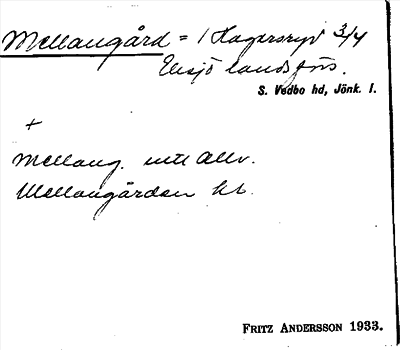 Mellangård = 1 Hagersryd 3/4
Eksjö landsförs.
S. Vedbo hd, Jönk. l.
+
Mellang. uttl allv.
Mellangården kt.
FRITZ ANDERSSON 1933.